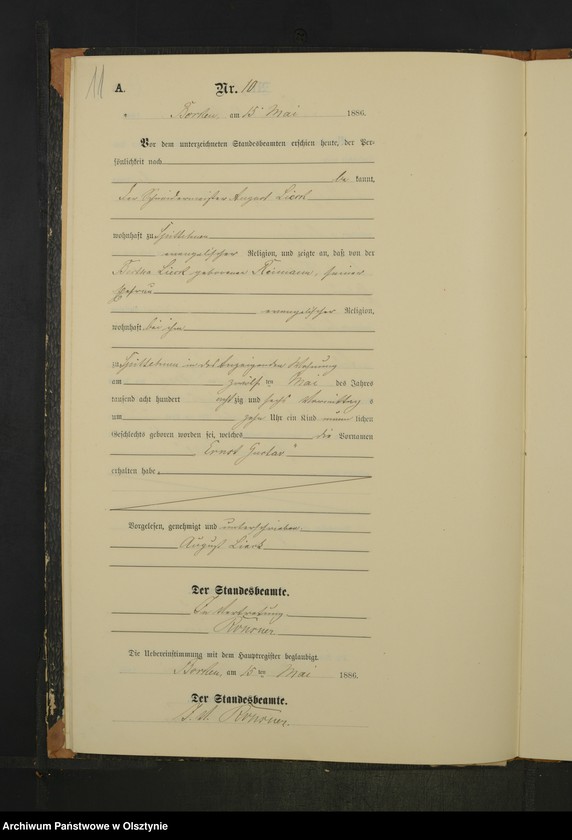 11
A.
Nr. 10
Borken, am 15 Mai 1886.
Vor dem unterzeichneten Standesbeamten erschien heute, der Per-
sönlichkeit nach
be kannt,
der Schneidermeister August Lierk
wohnhaft zu
evangelischer Religion, und zeigte an, daß von der
Bertha Lierk geborenen Reimann, seiner
Ehefrau
evangelischer Religion,
wohnhaft bei ihm
zu in des Anzeigenden Wohnung
am zwölf ten Mai des Jahres
tausend acht hundert achtzig und sechs Vormittag s
um zehn Uhr ein Kind männ lichen
Geschlechts geboren worden sei, welches die Vornamen
Ernst Gustav
erhalten habe.
Vorgelesen, genehmigt und unterschrieben.
August Lierk
Der Standesbeamte.
In Vertretung
Die Uebereinstimmung mit dem Hauptregister beglaubigt.
Borken, am 15 ten Mai 1886.
Der Standesbeamte.
Archiwum Państwowe w Olsztynie